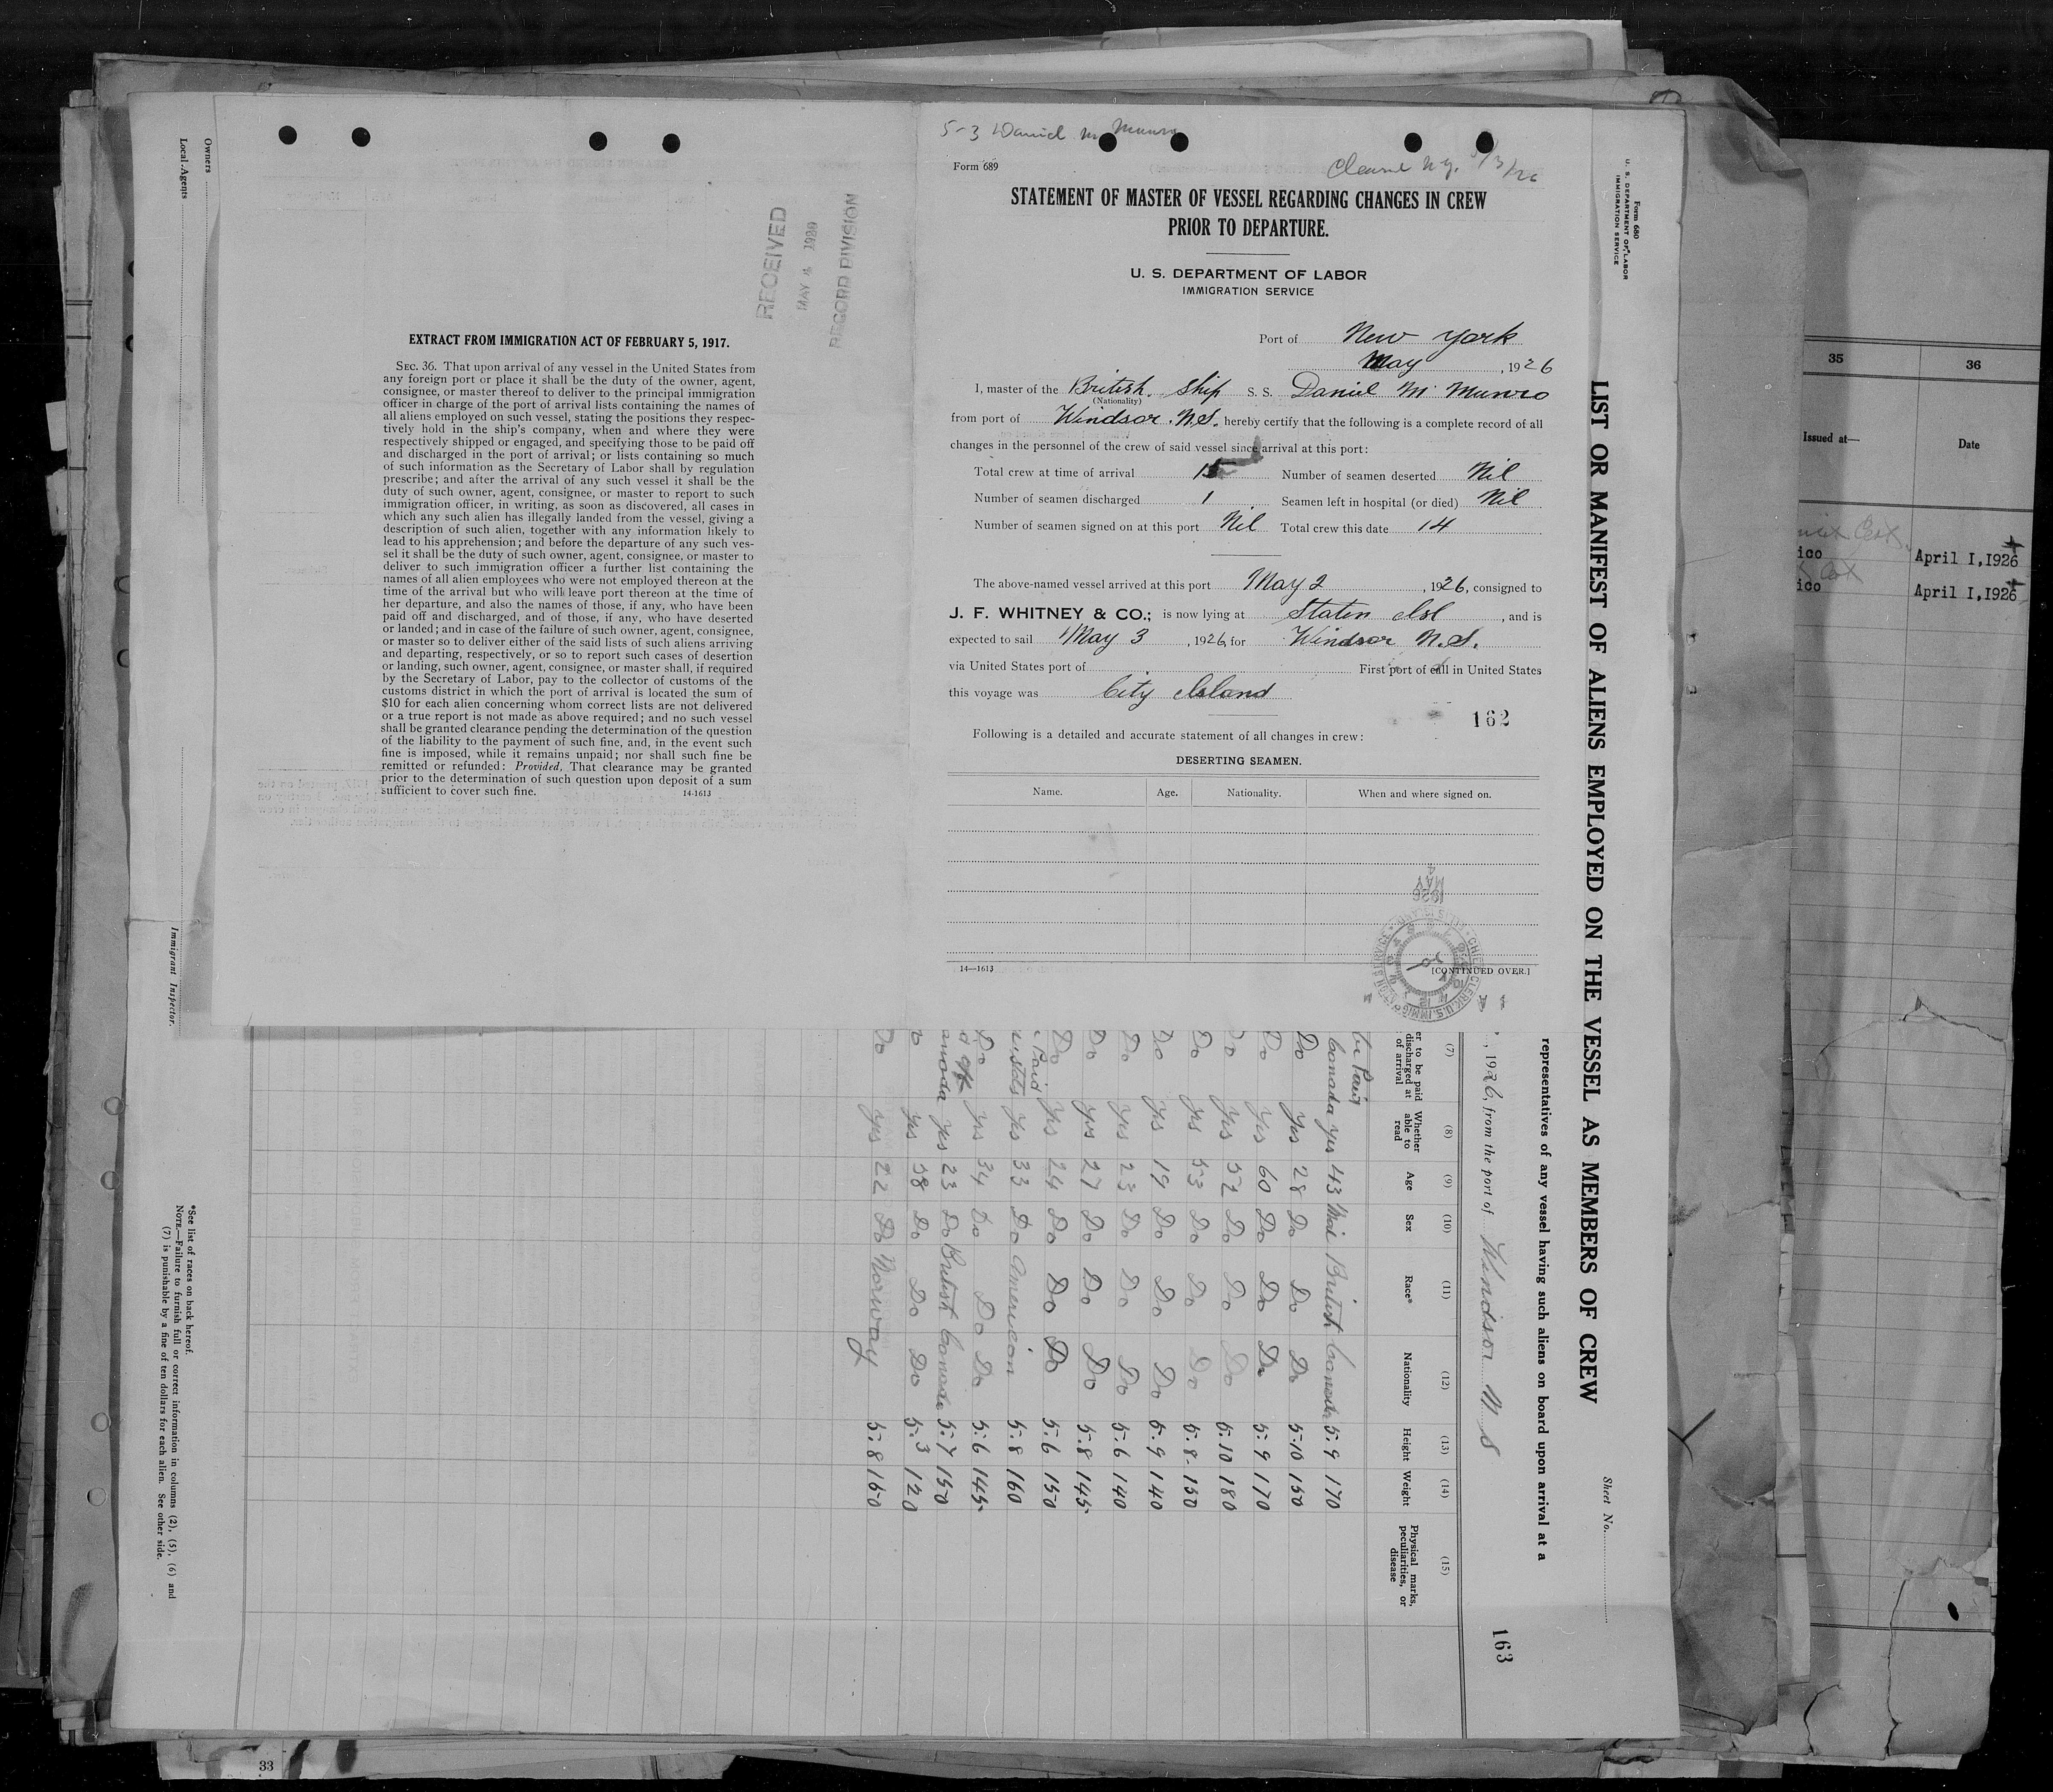 Owners
Local Agents
Immigrant Inspector.
RECEIVED
MAY 4 1926
RECORD DIVISION
EXTRACT FROM IMMIGRATION ACT OF FEBRUARY 5, 1917.
SEC. 36. That upon arrival of any vessel in the United States from
any foreign port or place it shall be the duty of the owner, agent,
consignee, or master thereof to deliver to the principal immigration
officer in charge of the port of arrival lists containing the names of
all aliens employed on such vessel, stating the positions they respec-
tively hold in the ship's company, when and where they were
respectively shipped or engaged, and specifying those to be paid off
and discharged in the port of arrival; or lists containing so much
of such information as the Secretary of Labor shall by regulation
prescribe; and after the arrival of any such vessel it shall be the
duty of such owner, agent, consignee, or master to report to such
immigration officer, in writing, as soon as discovered, all cases in
which any such alien has illegally landed from the vessel, giving a
description of such alien, together with any information likely to
lead to his apprehension; and before the departure of any such ves-
sel it shall be the duty of such owner, agent, consignee, or master to
deliver to such immigration officer a further list containing the
names of all alien employees who were not employed thereon at the
time of the arrival but who will leave port thereon at the time of
her departure, and also the names of those, if any, who have been
paid off and discharged, and of those, if any, who have deserted
or landed; and in case of the failure of such owner, agent, consignee,
or master so to deliver either of the said lists of such aliens arriving
and departing, respectively, or so to report such cases of desertion
or landing, such owner, agent, consignee, or master shall, if required
by the Secretary of Labor, pay to the collector of customs of the
customs district in which the port of arrival is located the sum of
$10 for each alien concerning whom correct lists are not delivered
or a true report is not made as above required; and no such vessel
shall be granted clearance pending the determination of the question
of the liability to the payment of such fine, and, in the event such
fine is imposed, while it remains unpaid; nor shall such fine be
remitted or refunded: Provided, That clearance may be granted
prior to the determination of such question upon deposit of a sum
sufficient to cover such fine. 14-1613
5-3 Daniel M Munro
Form 689
N.Y. 5/3/26
STATEMENT OF MASTER OF VESSEL REGARDING CHANGES IN CREW
PRIOR TO DEPARTURE.
U. S. DEPARTMENT OF LABOR
IMMIGRATION SERVICE
Port of New York
May, 1926
I, master of the British Ship S. S. Daniel M Munro
(Nationality)
from port of Windsor. N.S. hereby certify that the following is a complete record of all
changes in the personnel of the crew of said vessel since arrival at this port:
Total crew at time of arrival 15 Number of seamen deserted Nil
Number of seamen discharged 1 Seamen left in hospital (or died) Nil
Number of seamen signed on at this port Nil Total crew this date 14
The above-named vessel arrived at this port May 2, 1926, consigned to
J. F. WHITNEY & CO.; is now lying at Staten Isl, and is
expected to sail May 3, 1926, for Windsor N.S.
via United States port of First port of call in United States
this voyage was City Island
162
Following is a detailed and accurate statement of all changes in crew:
DESERTING SEAMEN.
Name. Age. Nationality. When and where signed on.
MAY 4
1926
14—1613 [CONTINUED OVER.]
Form 680
U. S. DEPARTMENT OF LABOR
IMMIGRATION SERVICE
LIST OR MANIFEST OF ALIENS EMPLOYED ON THE VESSEL AS MEMBERS OF CREW
Sheet No.
representatives of any vessel having such aliens on board upon arrival at a
, 1926, from the port of Windsor N S
163
(7) (8) (9) (10) (11) (12) (13) (14) (15)
er to be paid discharged at of arrival
Whether able to read
Age
Sex
Race*
Nationality
Height
Weight
Physical marks, peculiarities, or disease
Canada yes 43 British Canada 5.9 170
Do yes 28 Do Do Do 5.10 150
Do yes 60 Do Do Do 5.9 170
Do yes 52 Do Do Do 5.10 180
Do yes 53 Do Do Do 5.8 150
Do yes 19 Do Do Do 5.9 140
Do yes 23 Do Do Do 5.6 140
Do yes 27 Do Do Do 5.8 145
Do yes 24 Do Do Do 5.6 150
yes 33 Do American 5.8 160
Do yes 34 Do Do Do 5.6 145
yes 23 Do British Canada 5.7 150
yes 58 Do Do Do 5.3 120
Do yes 22 Do Norway 5.8 150
*See list of races on back hereof.
NOTE.—Failure to furnish full or correct information in columns (2), (5), (6) and
(7) is punishable by a fine of ten dollars for each alien. See other side.
35 36
Issued at— Date
ico April 1,1926
ico April 1,1926
33